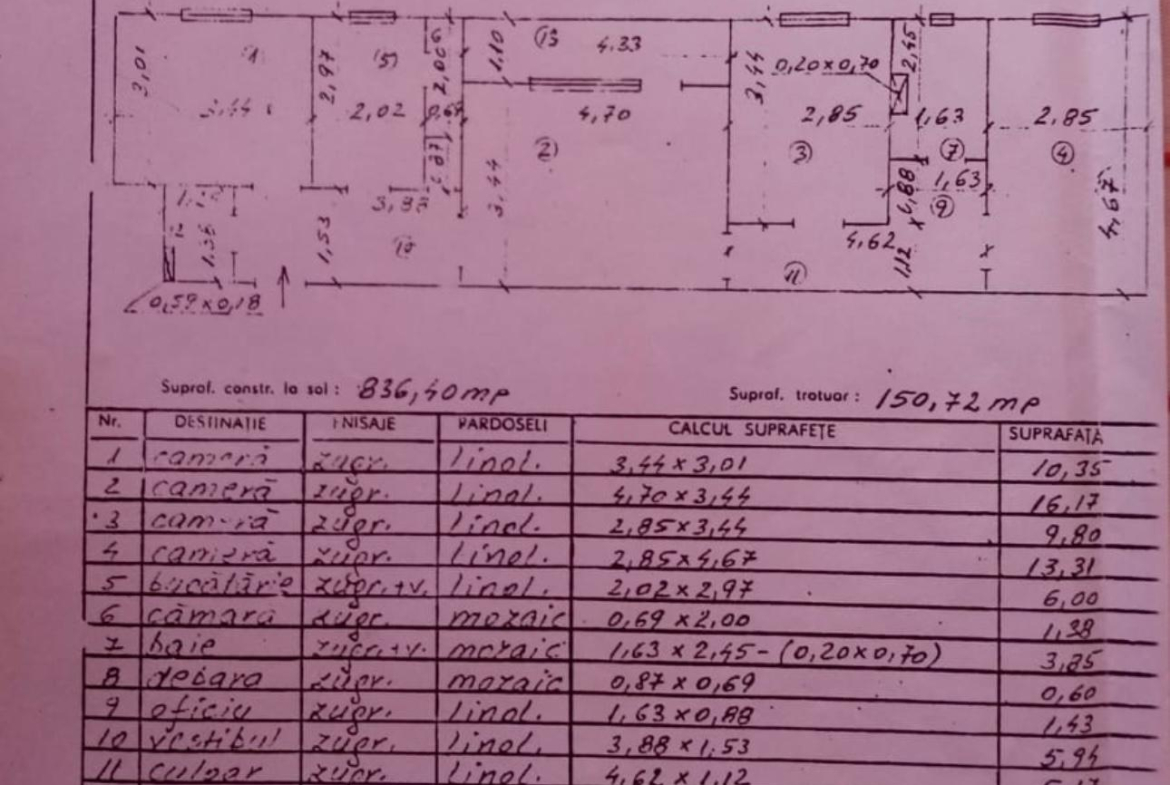 3,01
1
3,44
2,97
5
2,02
6
2,00
0,69
1,10
13
4.33
4,70
2
3,44
3,44
0,20x0,70
2,85
3
2,45
1,63
7
2,85
4
4,67
1,53
3,88
1,35
0,59x0,18
0,88
1,63
9
4,62
1,12
11
Supraf. constr. la sol: 836,40mp
Supraf. trotuar: 150,72 mp
Nr. DESTINAȚIE FINISAJE PARDOSELI CALCUL SUPRAFEȚE SUPRAFAȚA
1 cameră zugr. linol. 3,44 x 3,01 10,35
2 cameră zugr. linol. 4,70 x 3,44 16,17
3 cameră zugr. linol. 2,85x3,44 9,80
4 cameră zugr. linol. 2,85x4,67 13,31
5 bucătărie zugr.+v. linol. 2,02 x 2,97 6,00
6 cămară zugr. mozaic 0,69 x2,00 1,38
7 baie zugr.+v. mozaic 1,63 x 2,45-(0,20x0,70) 3,85
8 debara zugr. mozaic 0,87 x 0,69 0,60
9 oficiu zugr. linol. 1,63 x 0,88 1,43
10 vestibul zugr. linol. 3,88 x 1,53 5,94
11 culoar zugr. linol. 4,62 x 1,12